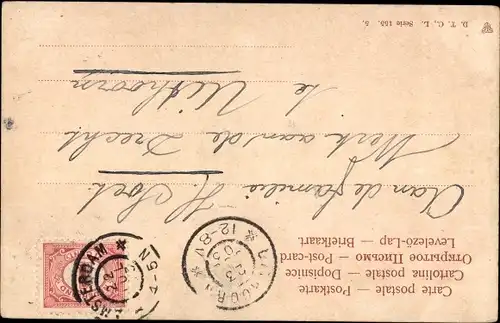 Carte postale — Postkarte
Cartolina postale — Dopisnice
Открытое Письмо — Post-card
Levelező-Lap — Briefkaart
Aan de familie H.
Werk aan de Drecht
te Uithoorn
D. T. C., L. Serie 155. 5.
AMSTERDAM
4-5 N
12-8V